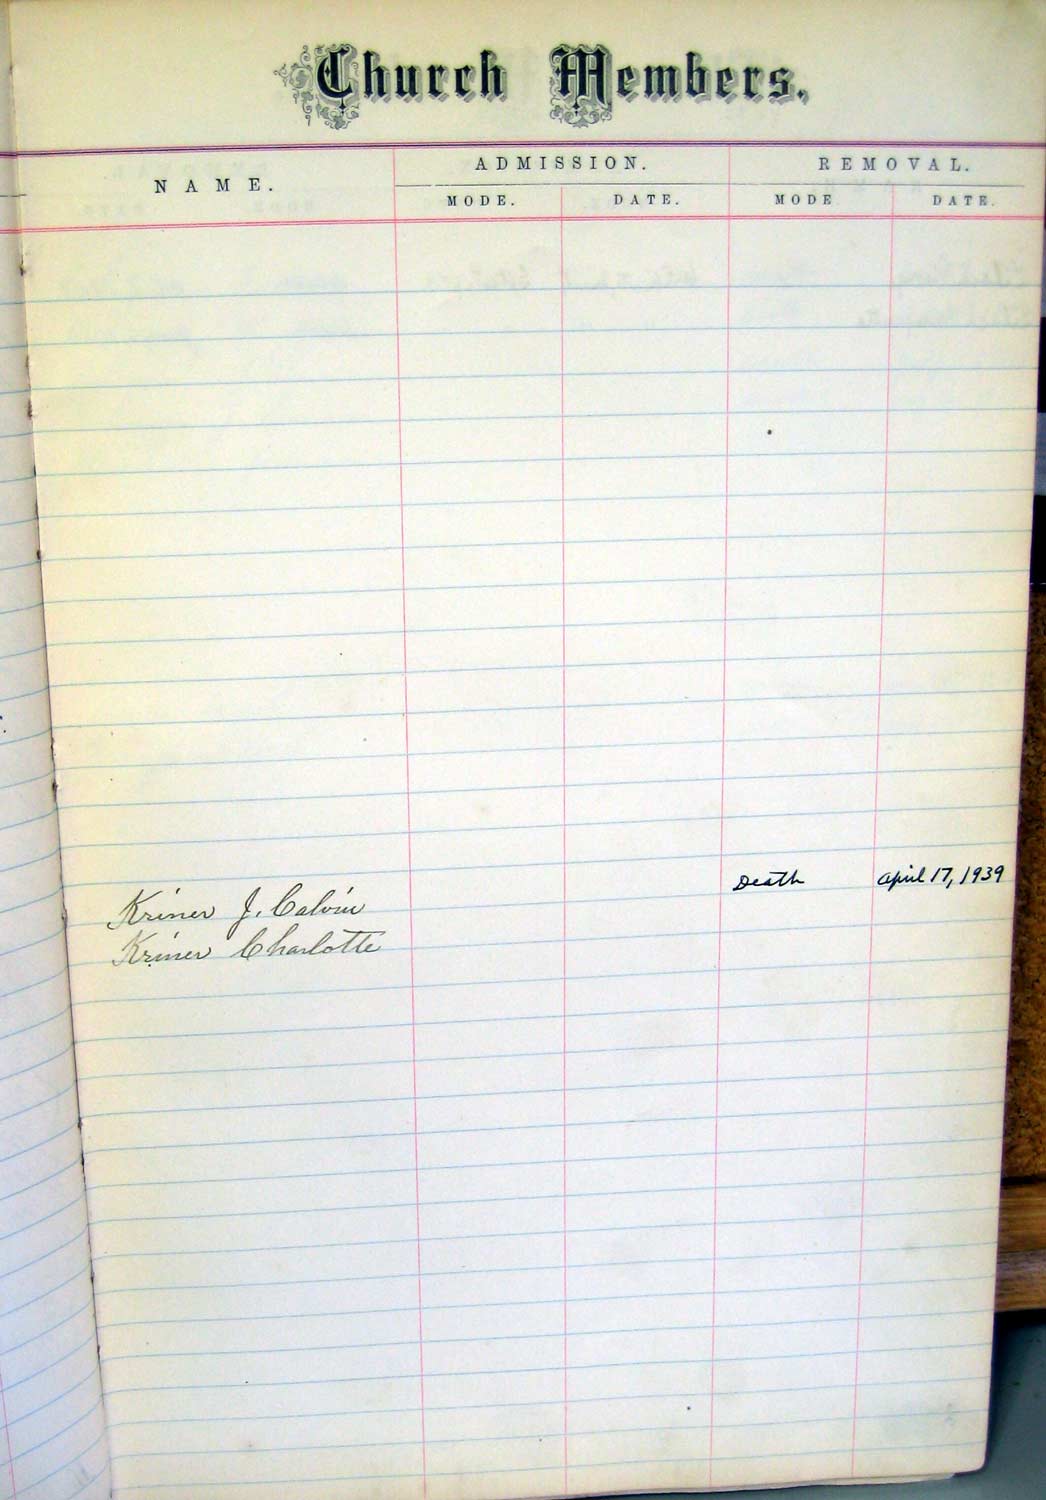 Church Members.
NAME. ADMISSION. REMOVAL.
MODE. DATE. MODE DATE.
Kriner J. Calvin Death April 17, 1939
Kriner Charlotte